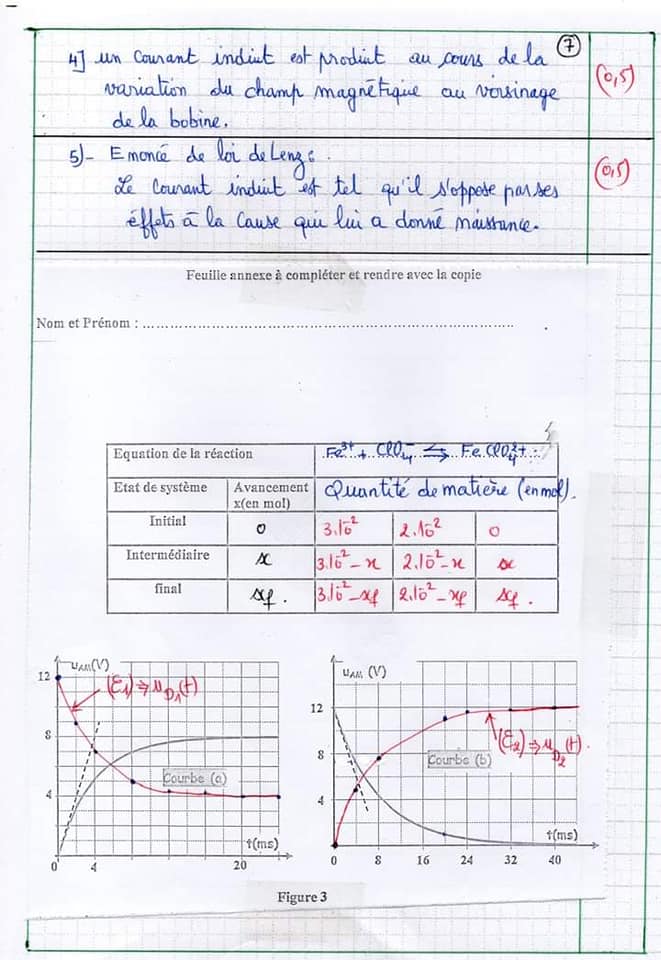 7
4] un courant induit est produit au cours de la
variation du champ magnétique au voisinage
de la bobine.
(0,5)
5)- Enoncé de loi de Lenz :
Le courant induit est tel qu'il s'oppose par ses
éffets à la cause qui lui a donné naissance.
(0,5)
Feuille annexe à compléter et rendre avec la copie
Nom et Prénom : ..........................................................................................
Equation de la réaction Fe³⁺ + ClO₄⁻ ⇆ FeClO₄²⁺
Etat de système Avancement x(en mol) Quantité de matière (en mol).
Initial 0 3.10⁻² 2.10⁻² 0
Intermédiaire x 3.10⁻² - x 2.10⁻² - x x
final xf. 3.10⁻² - xf 2.10⁻² - xf xf.
uAM(V)
12
8
4
0
4
20
t(ms)
(E₁) ⇒ uD₁(t)
Courbe (a)
uAM (V)
12
8
4
0 8 16 24 32 40
t(ms)
(E₂) ⇒ uD₂(t).
Courbe (b)
Figure 3